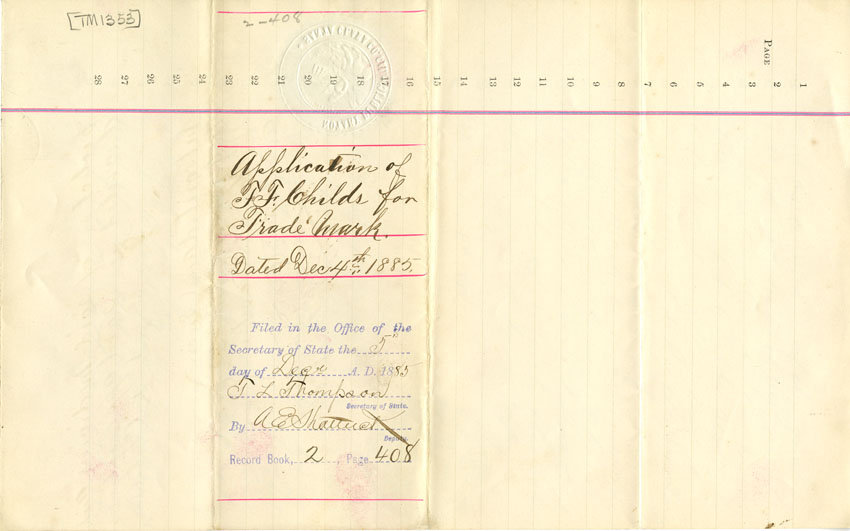 [TM1353]
2-408
PAGE
1
2
3
4
5
6
7
8
9
10
11
12
13
14
15
16
17
18
19
20
21
22
23
24
25
26
27
28
Application of
F. F. Childs for
Trade Mark.
Dated Dec 4th 1885.
Filed in the Office of the
Secretary of State the 5"
day of Decr A. D. 1885
T L Thompson
Secretary of State.
By A E Shattuck
Deputy.
Record Book, 2, Page 408